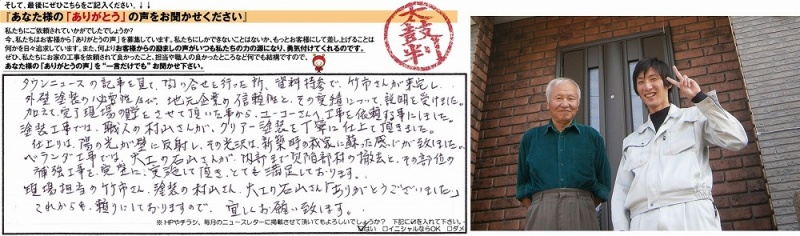 そして、最後にぜひこちらをご記入ください。↓↓
『あなた様の「ありがとう」の声をお聞かせください』
私たちにご依頼されていかがでしたでしょうか?
今、私たちはお客様から「ありがとう」の声を募集しています。私たちにしかできないことはないか、もっとお客様にして差し上げることは
何かを日々追求しています。また、何よりお客様からの励ましの声がいつも私たちの力の源になり、勇気付けてくれるのです。
ぜひ、私たちにお家の工事を依頼されて良かったこと、担当や職人の良かったところなど何でも結構ですので、
あなた様の「ありがとうの声」を"一言だけでも"お聞かせ下さい。
太鼓判
タウンニュースの記事を見て、問い合せを行った所、資料持参で、竹市さんが来宅し、
外壁塗装の必要性及び、地元企業の信頼性と、その実績について、説明を受けました。
加えて、完了現場の確認をさせて頂いた事から、ユーコーさんへ工事を依頼する事にしました。
塗装工事では、職人の村山さんが、クリアー塗装を丁寧に仕上て頂きました。
仕上りは、陽の光が壁に反射し、その光沢は新築時の我家に蘇った感じが致しました。
ベランダ工事では、大工の石山さんが、内部まで腐蝕部材の撤去と、その部位の
補強工事を、完璧に実施して頂き、とても満足しております。
現場担当の竹市さん、塗装の村山さん、大工の石山さん「ありがとうございました」
これからも、頼りにしておりますので、宜しくお願い致します。
※HPやチラシ、毎月のニュースレターに掲載させて頂いてもよろしいでしょうか? 下記に☑を入れて下さい。
☑はい □イニシャルならOK □ダメ